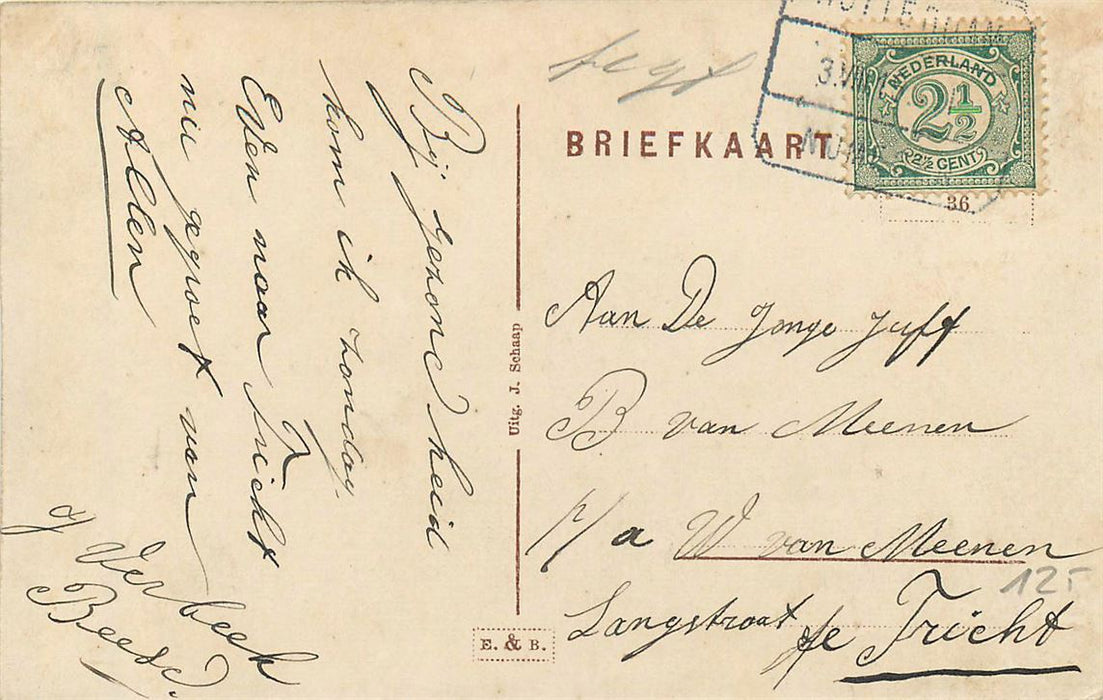 BRIEFKAART
NEDERLAND
2½
2½ CENT
36
Aan De Jonge Juff
B van Meenen
p/a W van Meenen
Langstraat te Tricht
12-
Bij gezond heid
kom ik zondag
Even naar Tricht
nu gegroet van
Allen
J Verbeek
Beesd.
Uitg. J. Schaap
E. & B.